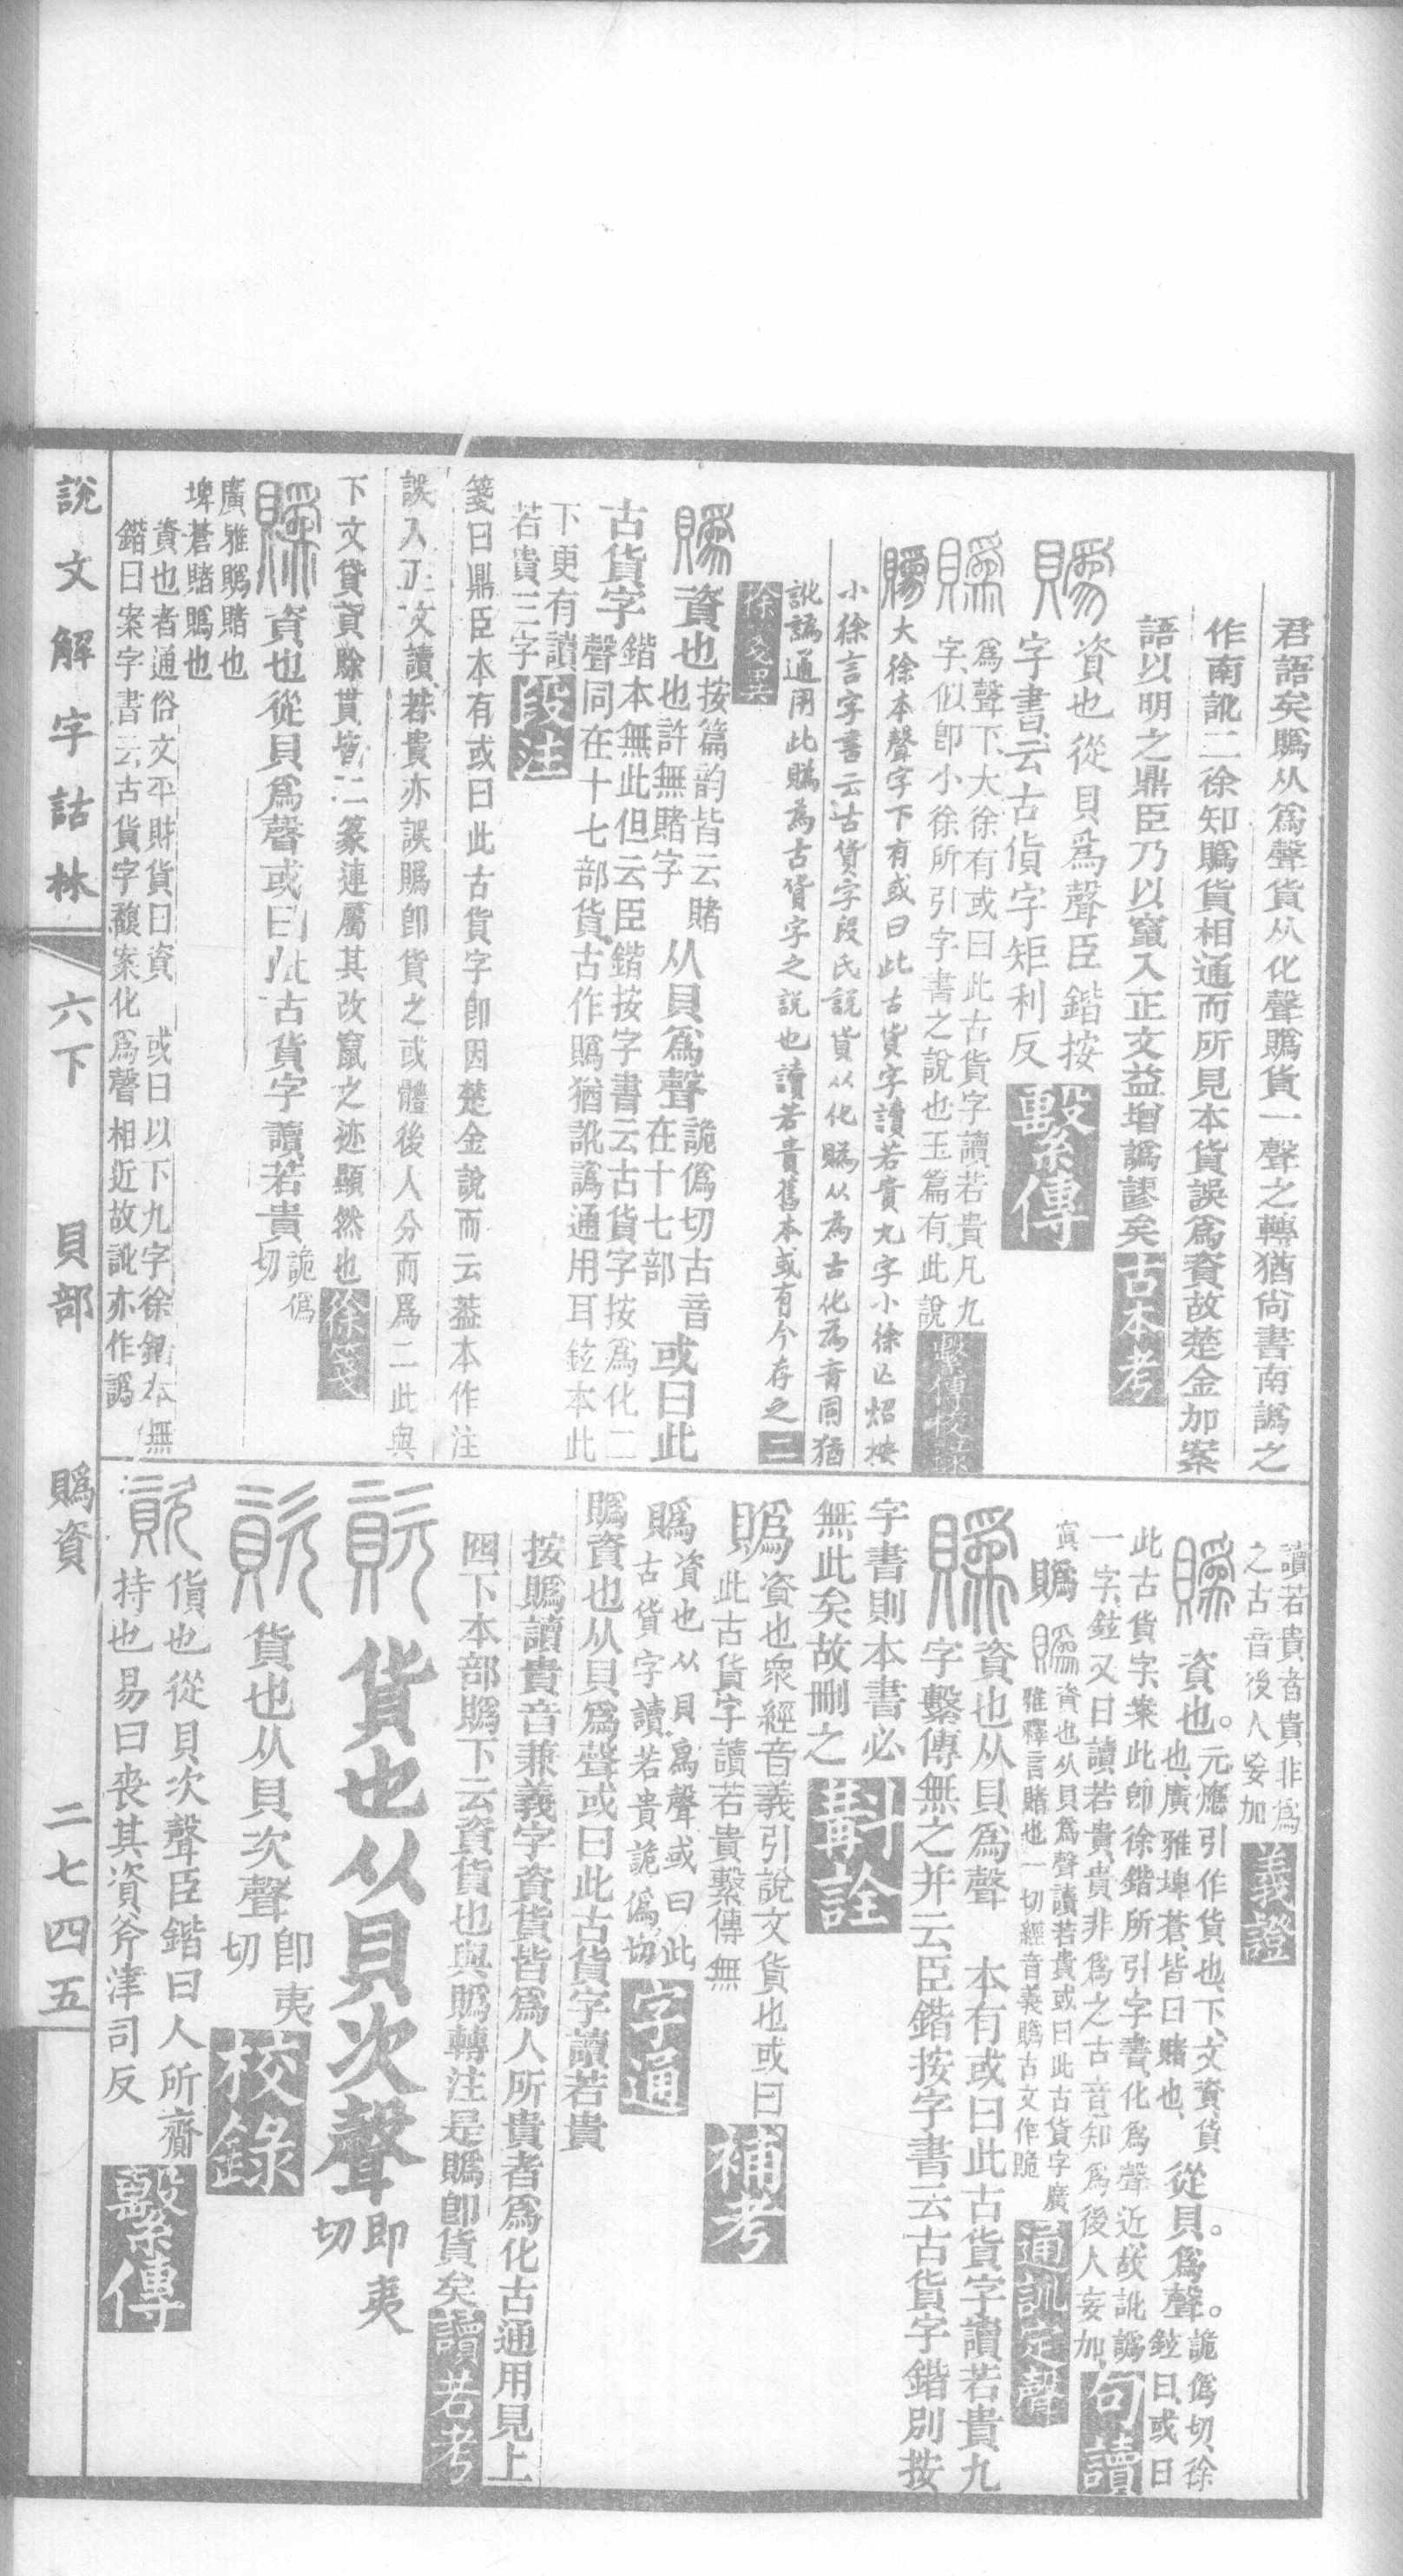 君語矣䞈从爲聲貨从化聲䞈貨一聲之轉猶尙書南譌之
作南訛二徐知䞈貨相通而所見本貨誤爲資故楚金加案
語以明之鼎臣乃以竄入正文益增譌謬矣古本考
䞈資也從貝爲聲臣鍇按
字書云古貨字矩利反繫傳
䞈爲聲下大徐有或曰此古貨字讀若貴凡九
字似卽小徐所引字書之說也玉篇有此說繫傳校錄
䞈大徐本聲字下有或曰此古貨字讀若貴九字小徐
小徐言字書云古貨字段氏說貨从化䞈从為古化為音同猶
訛譌通用此䞈為古貨字之說也讀若貴舊本或有今存之二
徐箋異
䞈資也按篇韵皆云賭
也許無賭字从貝爲聲詭僞切古音
在十七部或曰此
古貨字鍇本無此但云臣鍇按字書云古貨字按爲化二
聲同在十七部貨古作䞈猶訛譌通用耳鉉本此
下更有讀
若貴三字段注
箋曰鼎臣本有或曰此古貨字卽因楚金說而云葢本作注
誤入正文讀若貴亦誤䞈卽貨之或體後人分而爲二此與
下文貸貣賒貰皆二篆連屬其改竄之迹顯然也徐箋
䞈資也從貝爲聲或曰此古貨字讀若貴詭僞
切
廣雅䞈賭也
埤蒼賭䞈也
資也者通俗文平財貨曰資 或曰以下九字徐鍇本無
鍇曰案字書云古貨字馥案化爲聲相近故訛亦作譌
讀若貴者貴非爲
之古音後人妄加義證
䞈資也。元應引作貨也、下文資貨
也、廣雅埤蒼、皆曰賭也、從貝。爲聲。詭僞切、徐
鉉曰、或曰
此古貨字、案此卽徐鍇所引字書、化爲聲近、故訛譌
一字、鉉又曰讀若貴、貴非爲之古音、知爲後人妄加、句讀
䞈䞈資也从貝爲聲讀若貴或曰此古貨字廣
雅釋言賭也一切經音義䞈古文作䞈通訓定聲
䞈資也从貝爲聲 本有或曰此古貨字讀若貴九
字繫傳無之并云臣鍇按字書云古貨字鍇別按
字書則本書必
無此矣故刪之斠詮
䞈資也衆經音義引說文貨也或曰
此古貨字讀若貴繫傳無補考
䞈資也从貝爲聲或曰此
古貨字讀若貴詭僞切字通
䞈資也从貝爲聲或曰此古貨字讀若貴
按䞈讀貴音兼義字資貨皆爲人所貴者爲化古通用見上
四下本部䞈下云資貨也與䞈轉注是䞈卽貨矣讀若考
資貨也从貝次聲卽夷
切
資貨也从貝次聲卽夷
切校錄
資貨也從貝次聲臣鍇曰人所齎
持也易曰喪其資斧津司反繫傳
說文解字詁林 六下 貝部 䞈資 二七四五